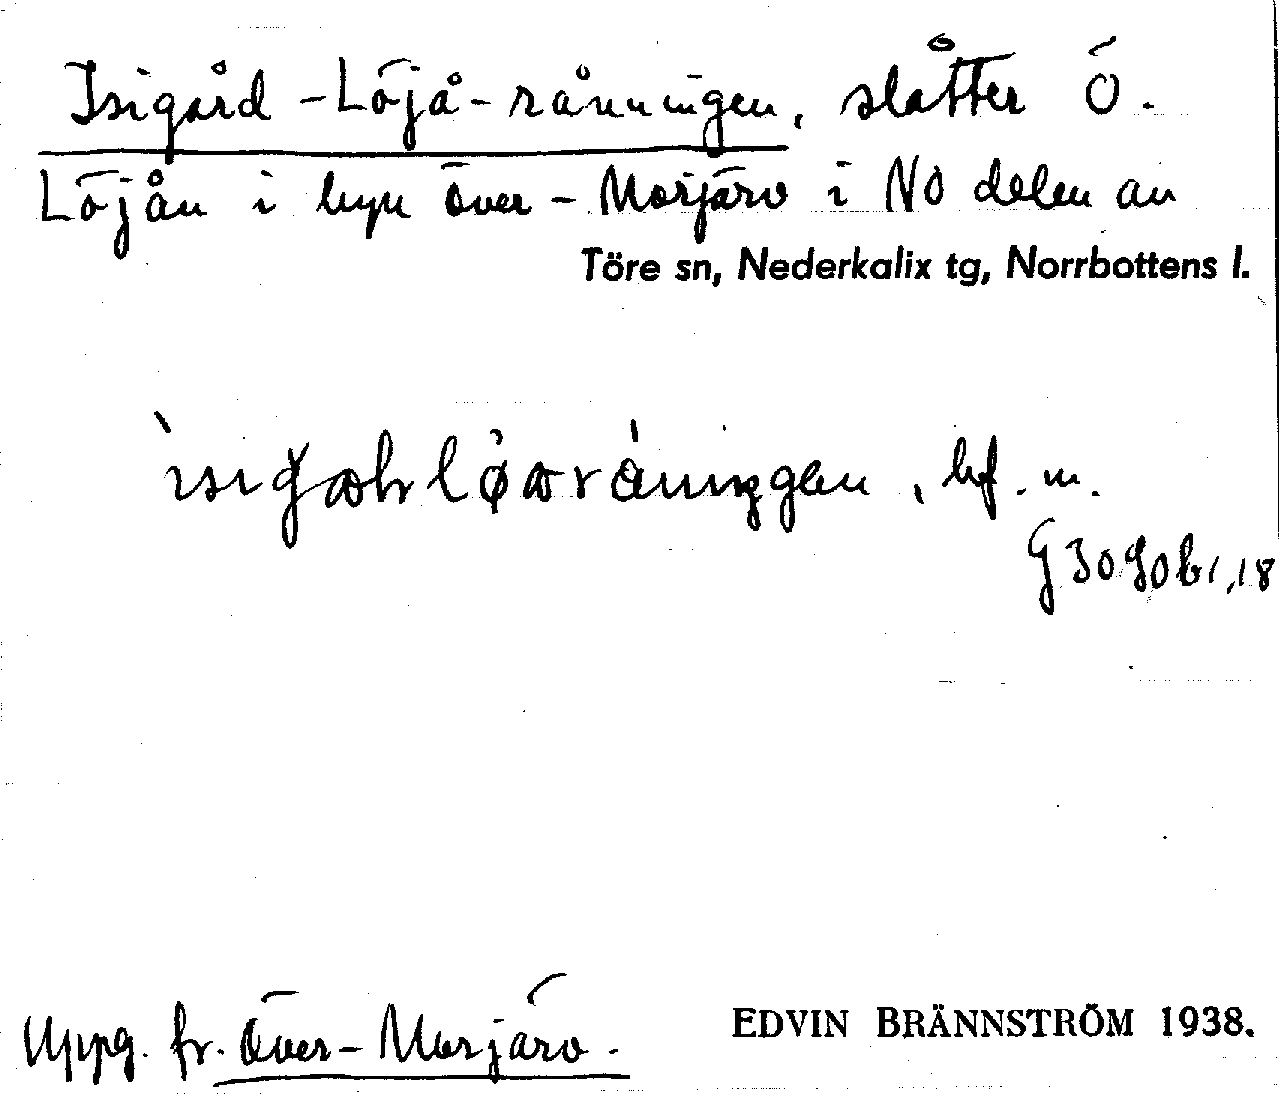 Isigård-Löjå-rånningen, slåtter Ö.
Löjån i byn Över-Morjärv i NO delen av
Töre sn, Nederkalix tg, Norrbottens l.
bf. m.
Uppg. fr. Över-Morjärv.
EDVIN BRÄNNSTRÖM 1938.